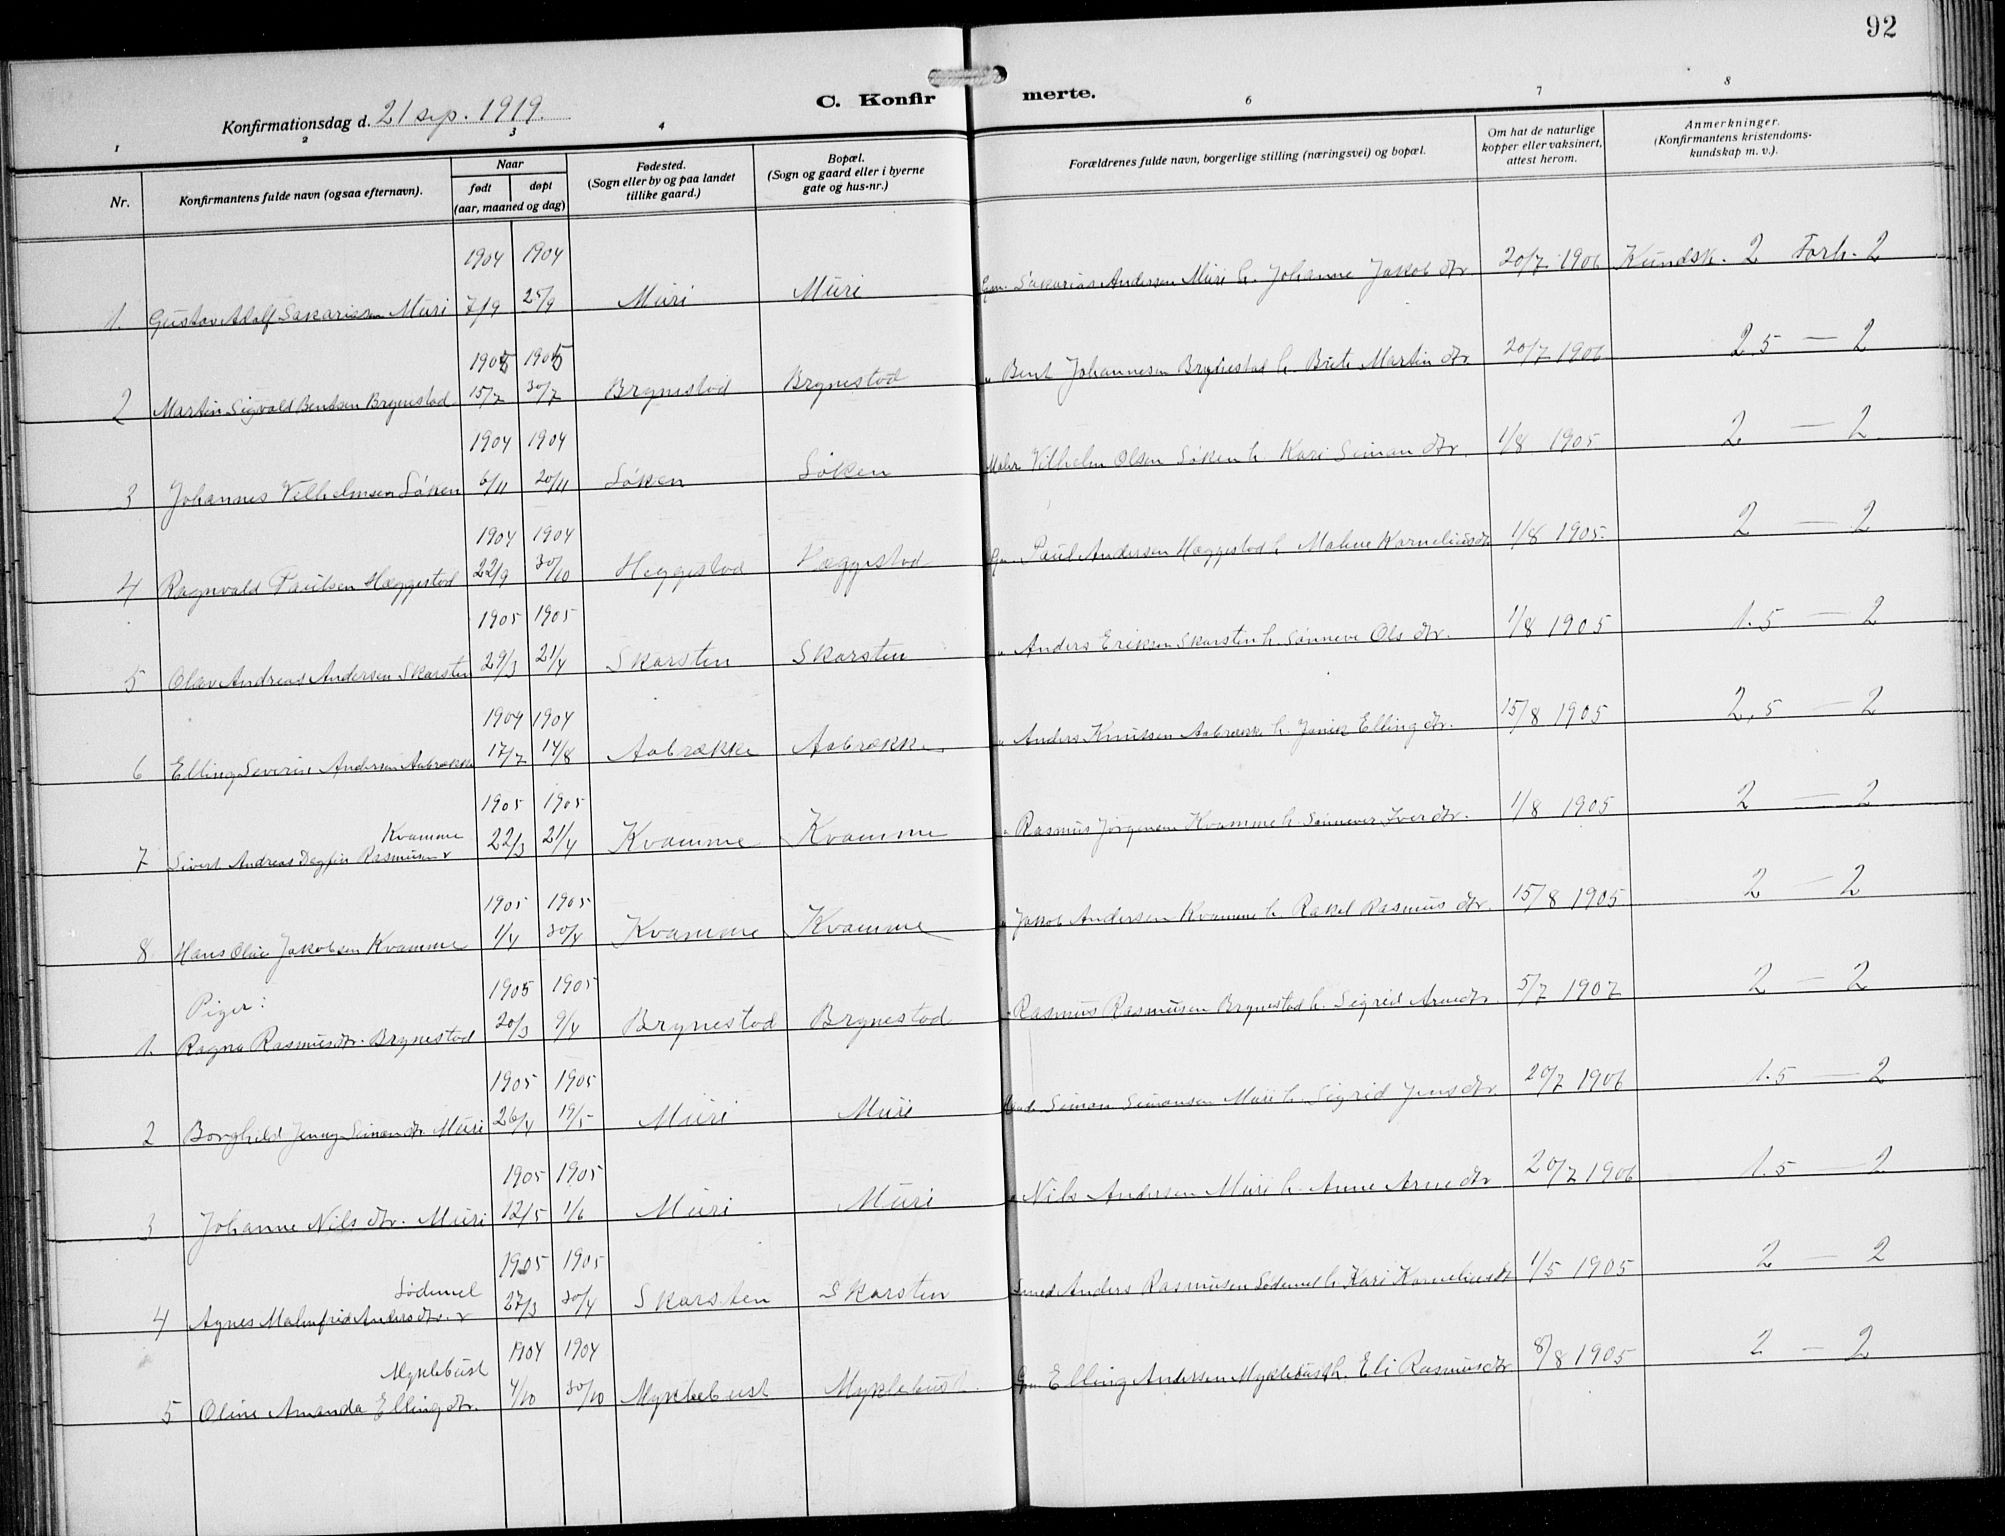 92
C. Konfirmerte.
Konfirmationsdag d. 21 sep. 1919.
1 2 3 4 6 7 8
Nr.
Konfirmantens fulde navn (ogsaa efternavn).
Naar
født døpt
(aar, maaned og dag)
Fødested.
(Sogn eller by og paa landet
tillike gaard.)
Bopæl.
(Sogn og gaard eller i byerne
gate og hus-nr.)
Forældrenes fulde navn, borgerlige stilling (næringsvei) og bopæl.
Om hat de naturlige
kopper eller vaksinert,
attest herom.
Anmerkninger.
(Konfirmantens kristendoms-
kundskap m. v.).
1904 1904
1. Gustav Adolf Sakariasen Muri 7/9 25/9 Muri Muri Gm. Sakarias Andersen Muri h. Johanne Jakob dtr 20/7 1906 Kundsk. 2 Forh. 2
1905 1905
2 Martin Sigvald Bentsen Brynestad 15/7 30/7 Brynestod Brynestod " Bent Johannesen Brynestad h. Brite Martin dtr 20/7 1906 2 5 — 2
1904 1904
3 Johannes Vilhelmsen Løken 6/11 20/11 Løken Løken Maler Vilhelm Olsen Løken h. Kari Simon dtr. 1/8 1905 2 — 2
1904 1904
4 Ragnvald Paulsen Hæggestod 22/9 30/10 Heggestod Hæggestod Gm. Paul Andersen Hæggestod h. Malene Korneliusdtr 1/8 1905. 2 — 2
1905 1905
5 Olav Andreas Andersen Skarsten 29/3 21/4 Skarsten Skarsten " Anders Eriksen Skarsten h. Sønneve Ols dtr. 1/8 1905 1.5 — 2
1904 1904
6 Elling Severin Andersen Aabrække 17/7 14/8 Aabrække Aabrække. " Anders Knutsen Aabrække h. Elling dtr. 15/8 1905 2,5 — 2
1905 1905
Kvamme
7 Sivert Andreas Dagfin Rasmusen 22/3 21/4 Kvamme Kvamme " Rasmus Jørgensen Kvamme h. Iver dtr. 1/8 1905 2 — 2
1905 1905
8 Hans Olai Jakobsen Kvamme 1/4 30/4 Kvamme Kvamme " Jakob Andersen Kvamme h. Rakel Rasmus dtr. 15/8 1905 2 — 2
Piger: 1905 1905
1. Ragna Rasmusdtr. Brynestod 20/3 9/4 Brynestod Brynestod " Rasmus Rasmusen Brynestad h. Sigrid Arnedtr. 5/7 1907 2 — 2
1905 1905
2 Borghild Jenny Simondtr Muri 26/4 19/5 Muri Muri Simon Simonsen Muri h. Sigrid Jens dtr 20/7 1906 1.5 — 2
1905 1905
3 Johanne Nils dtr. Muri 12/5 1/6 Muri Muri " Nils Andersen Muri h. Anne Arnedtr 20/7 1906 1.5 — 2
1905 1905
Lødemel
4 Agnes Malmfrid Andersdtr. 27/3 30/4 Skarsten Skarsten Smed Anders Rasmusen Lødemel h. Kari Korneliusdtr 1/5 1905 2 — 2
1904 1904
Myklebust
5 Oline Amanda Ellingdtr. 4/10 30/10 Myklebust Myklebust. Gm Elling Andersen Myklebust h. Eli Rasmusdtr 8/8 1905 2 — 2